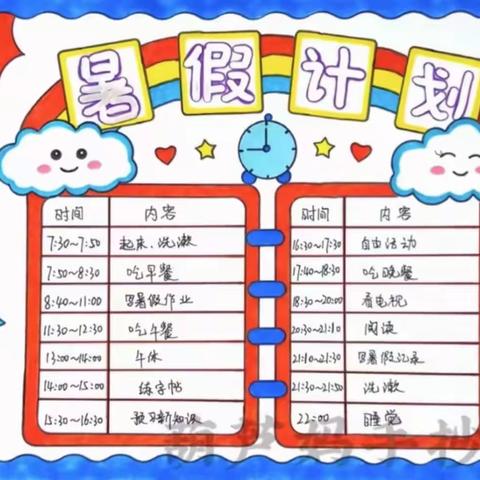 暑假计划
时间 内容
7:30~7:50 起床、洗漱
7:50~8:30 吃早餐
8:40~11:00 写暑假作业
11:30~12:30 吃午餐
13:00~14:00 午休
14:00~15:00 练字帖
15:30~16:30 预习新知识
时间 内容
16:30~17:30 自由活动
17:40~18:30 吃晚餐
18:30~20:00 看电视
20:30~21:10 阅读
21:10~21:30 写暑假记录
21:30~21:50 洗漱
22:00 睡觉
葫芦妈手抄